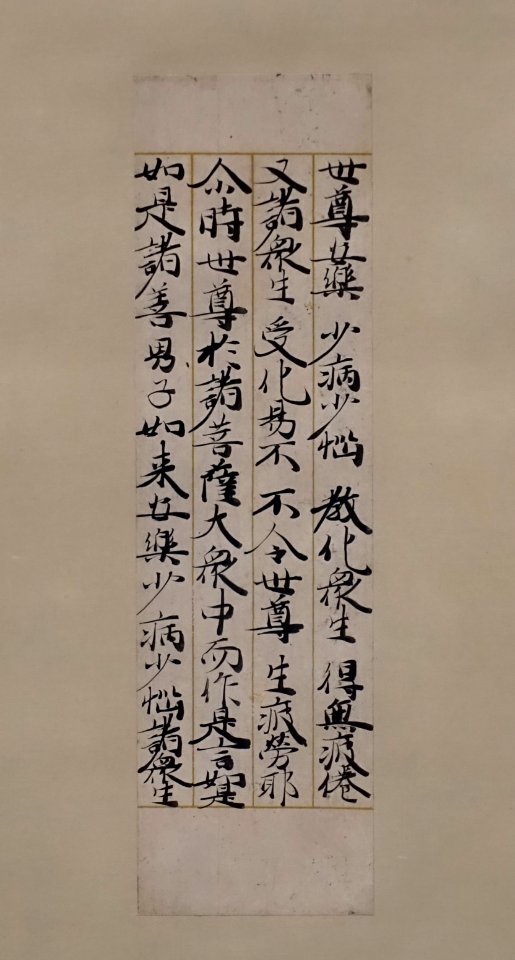 世尊安樂 少病少惱 教化衆生 得無疲倦
又諸衆生 受化易不 不令世尊 生疲勞耶
尒時世尊於諸菩薩大衆中而作是言如是
如是諸善男子如来安樂少病少惱諸衆生